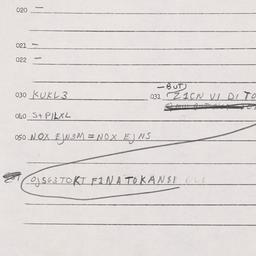 020 —
021 —
022 —
—BUT)
030 KUKL3 031 (Z1CN VI DI TO
040 S+PILXL
050 NOX EJNSM = NOX EJNS
OJSG3TOKT F1NATOKANSI